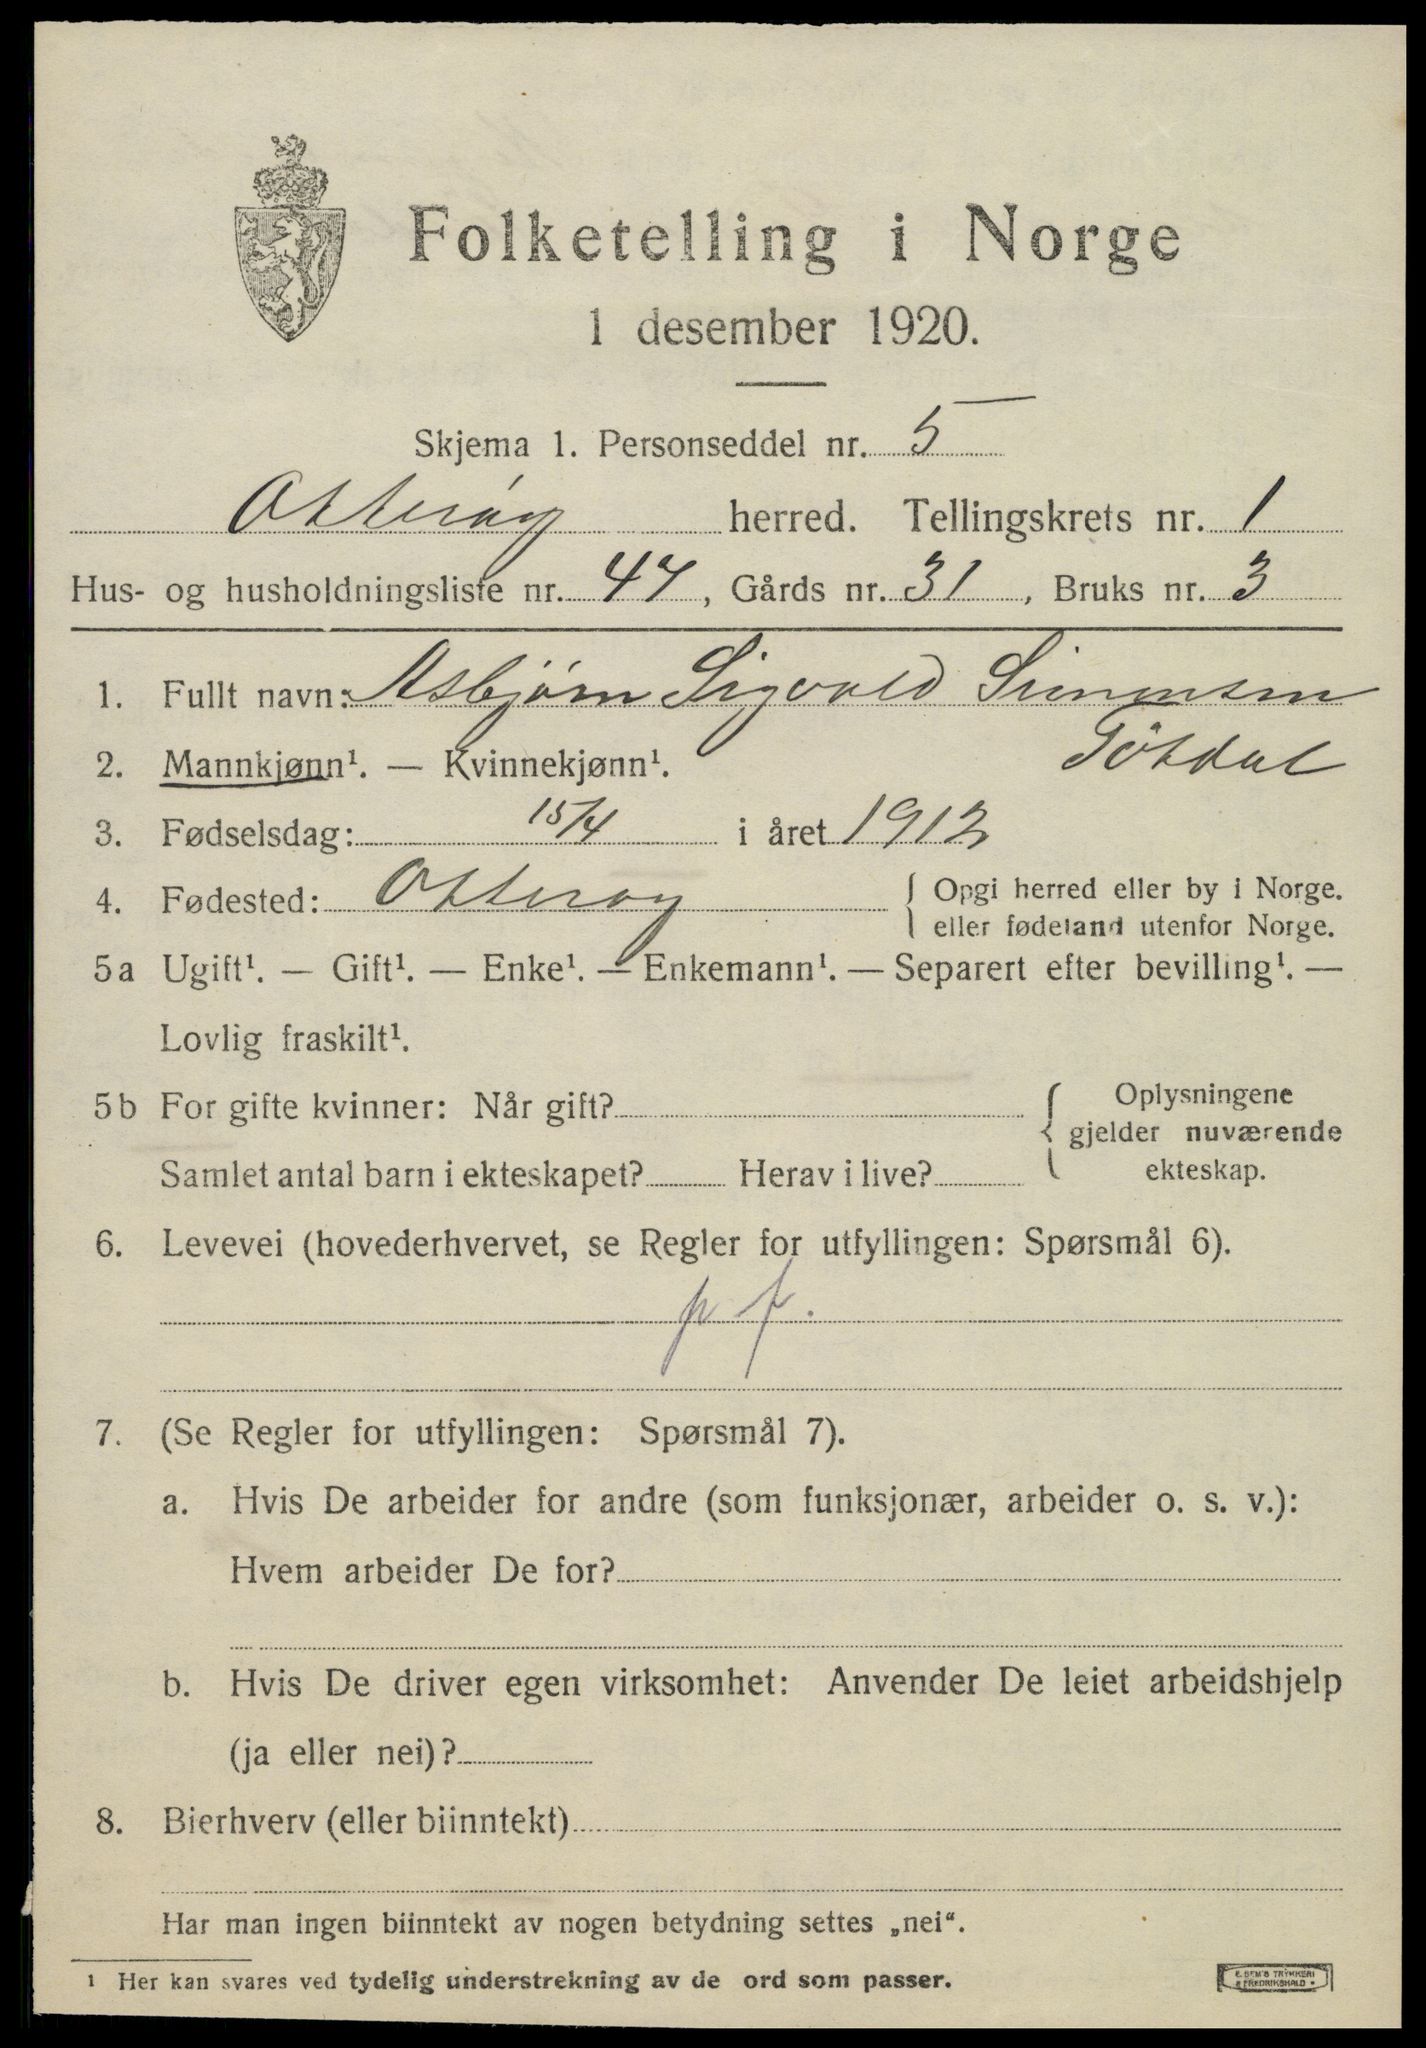 Folketelling i Norge
1 desember 1920.
Skjema 1. Personseddel nr. 5
Otterøy herred. Tellingskrets nr. 1
Hus- og husholdningsliste nr. 47, Gårds nr. 31, Bruks nr. 3
1. Fullt navn: Asbjørn Sigvald Simonsen
Tötdal
2. Mannkjønn¹. — Kvinnekjønn¹.
3. Fødselsdag: 15/4 i året 1912
4. Fødested: Otterøy { Opgi herred eller by i Norge.
eller fødeland utenfor Norge.
5a Ugift¹. — Gift¹. — Enke¹. — Enkemann¹. — Separert efter bevilling¹. —
Lovlig fraskilt¹.
5b For gifte kvinner: Når gift? { Oplysningene
gjelder nuværende
Samlet antal barn i ekteskapet? Herav i live? ekteskap.
6. Levevei (hovederhvervet, se Regler for utfyllingen: Spørsmål 6).
p f.
7. (Se Regler for utfyllingen: Spørsmål 7).
a. Hvis De arbeider for andre (som funksjonær, arbeider o. s. v.):
Hvem arbeider De for?
b. Hvis De driver egen virksomhet: Anvender De leiet arbeidshjelp
(ja eller nei)?
8. Bierhverv (eller biinntekt)
Har man ingen biinntekt av nogen betydning settes „nei“.
¹ Her kan svares ved tydelig understrekning av de ord som passer.
E. SEM'S TRYKKERI
FREDRIKSHALD